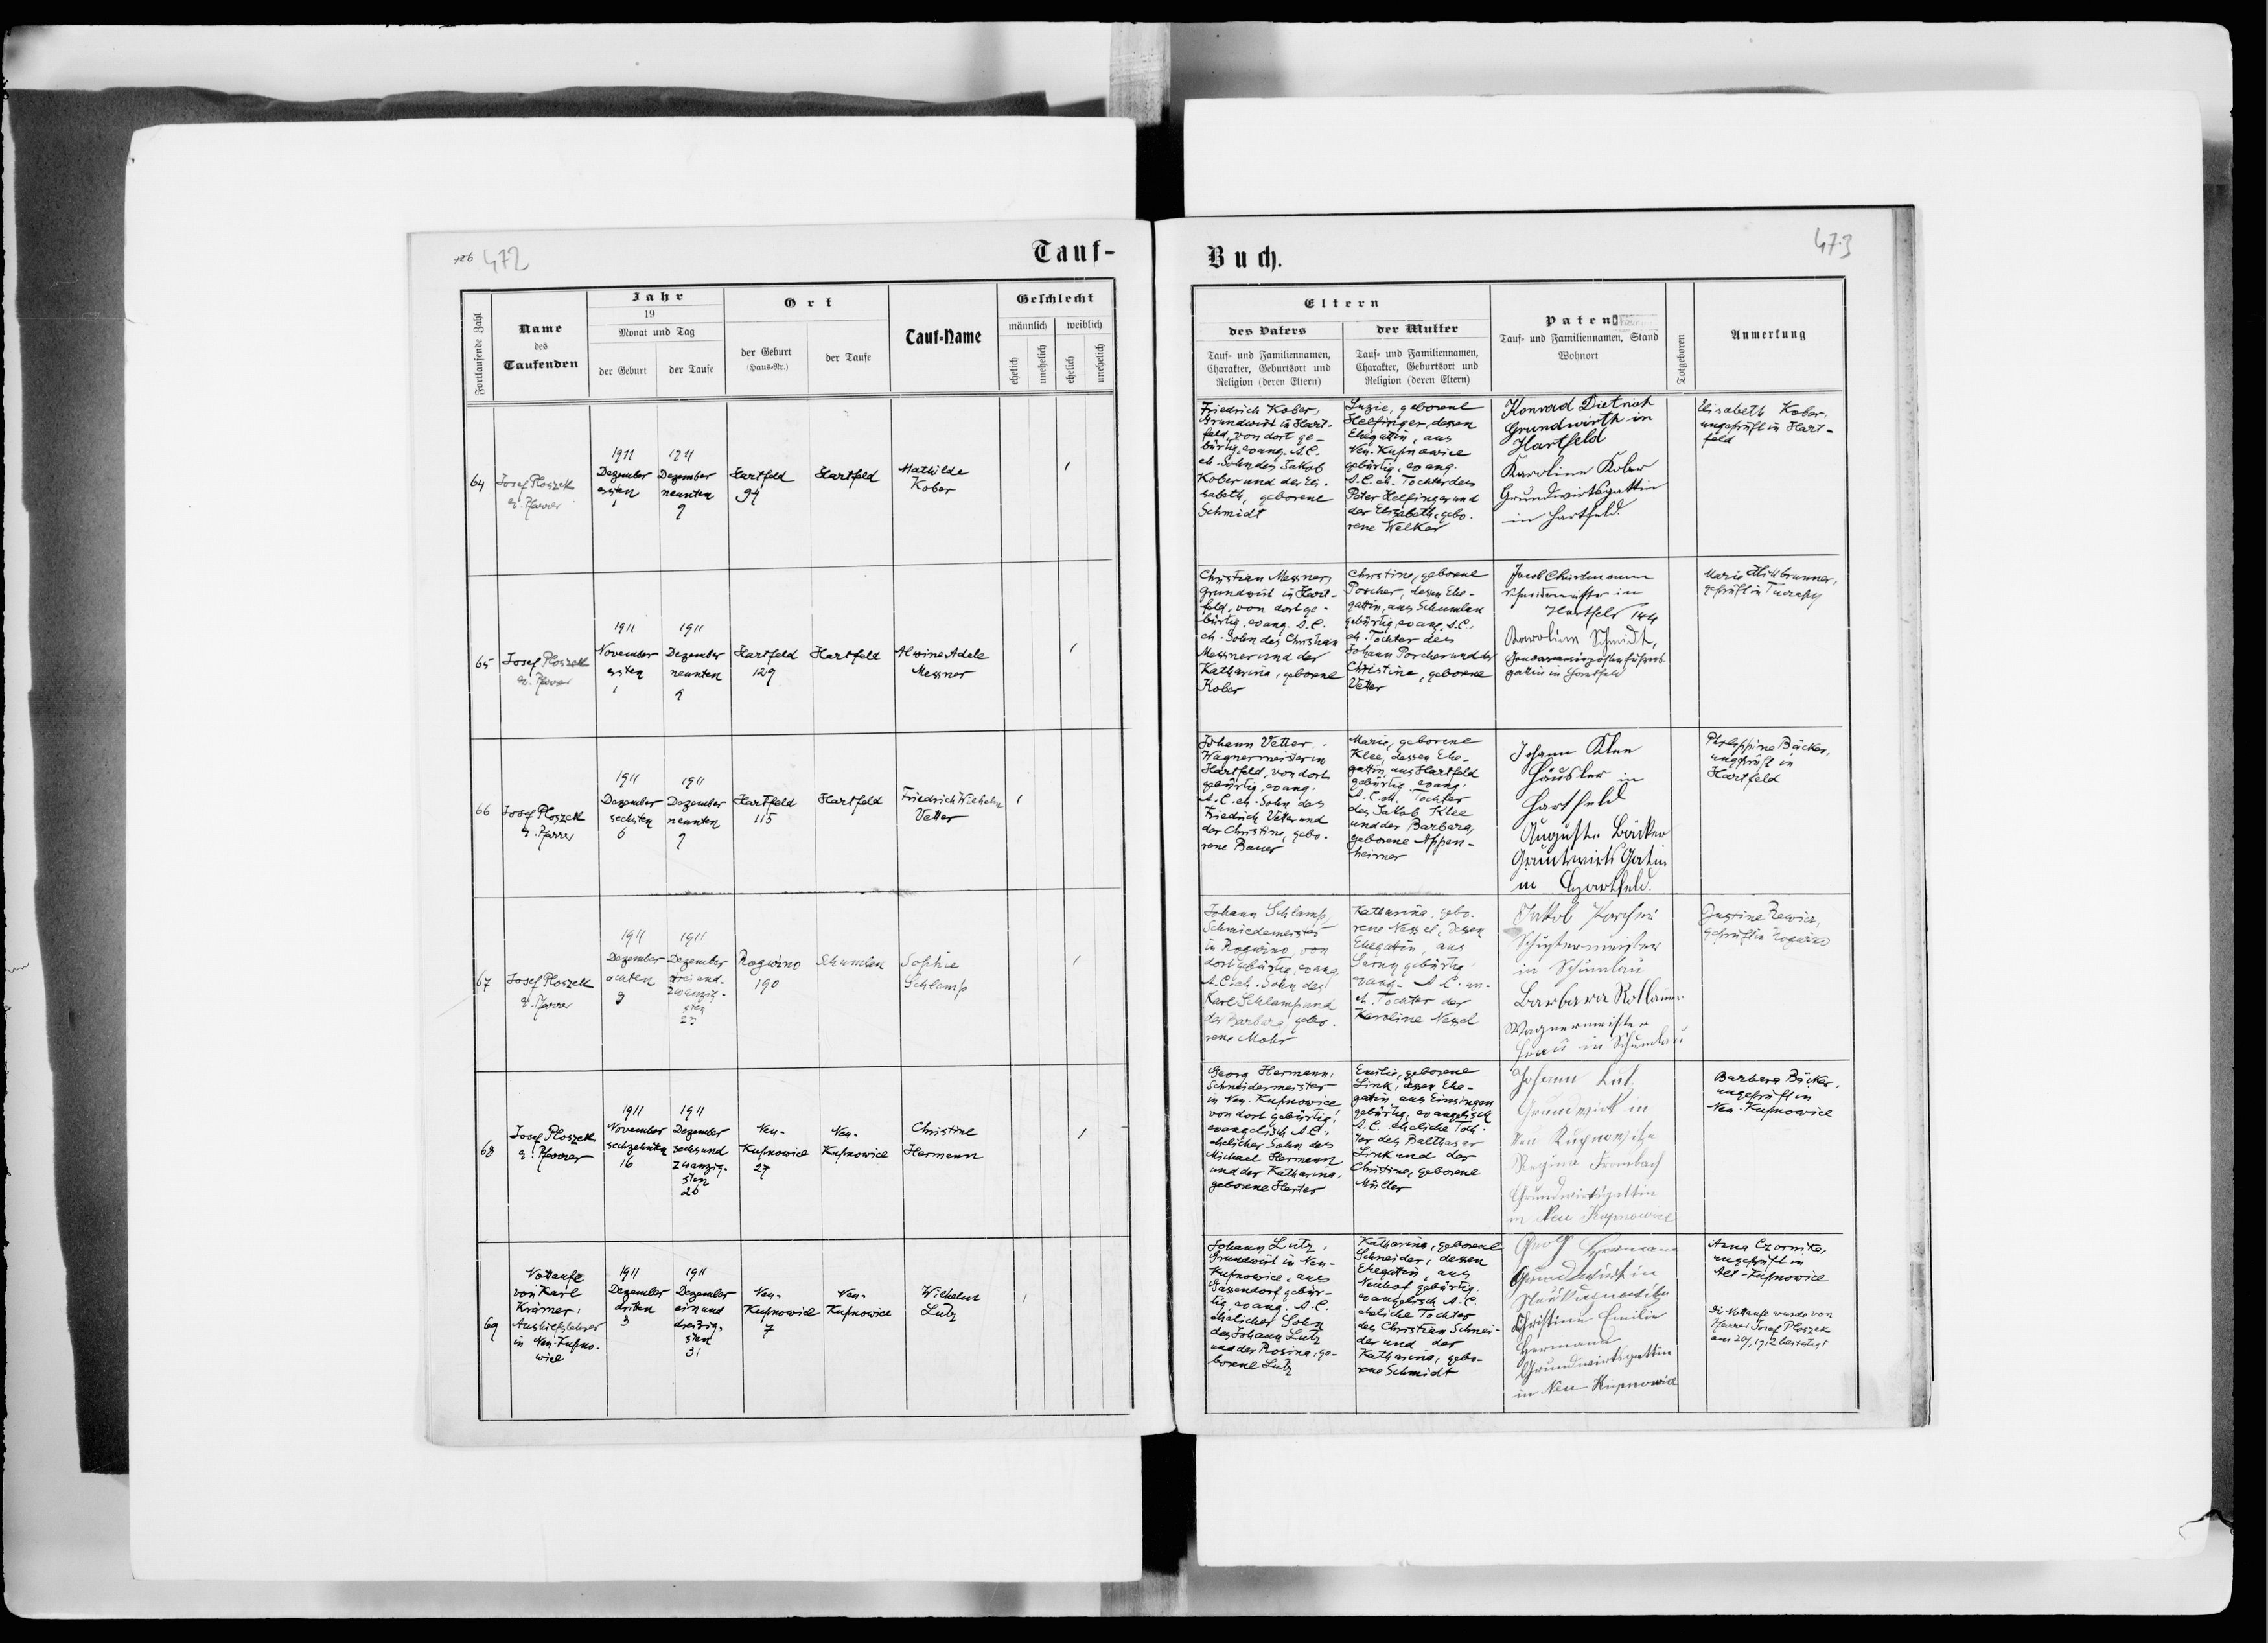 126 472
Tauf-
Buch.
473
Fortlaufende Zahl
Name
des
Taufenden
Jahr
19
Monat und Tag
der Geburt
der Taufe
Ort
der Geburt
(Haus-Nr.)
der Taufe
Tauf-Name
Geschlecht
männlich
weiblich
ehelich
unehelich
ehelich
unehelich
Eltern
des Vaters
Tauf- und Familiennamen,
Charakter, Geburtsort und
Religion (deren Eltern)
der Mutter
Tauf- und Familiennamen,
Charakter, Geburtsort und
Religion (deren Eltern)
Paten
Tauf- und Familiennamen, Stand
Wohnort
Totgeboren
Anmerkung
64
Josef Ploszek
ev. Pfarrer
1911
Dezember
ersten
1
1911
Dezember
neunten
9
Hartfeld
94
Hartfeld
Mathilde
Kober
1
Friedrich Kober,
Grundwirt in Hart-
feld, von dort ge-
bürtig, evang. A.C.
eh. Sohn des Jakob
Kober und der Eli-
sabeth, geborene
Schmidt
Luzie, geborene
Helfinger, dessen
Ehegattin, aus
Neu-Kupnowice
gebürtig, evang.
A.C. eh. Tochter des
Peter Helfinger und
der Elisabeth, gebo-
rene Welker
Konrad Dietrich
Grundwirth in
Hartfeld
Karoline Kober
Grundwirtsgattin
in Hartfeld.
Elisabeth Kober,
ungeprüft in Hart-
feld
65
Josef Ploszek
ev. Pfarrer
1911
November
ersten
1
1911
Dezember
neunten
9
Hartfeld
129
Hartfeld
Alwine Adele
Messner
1
Christian Messner,
Grundwirt in Hart-
feld, von dort ge-
bürtig, evang. A.C.
eh. Sohn des Christian
Messner und der
Katharina, geborene
Kober
Christine, geborene
Porcher, dessen Ehe-
gattin, aus Schumlau
gebürtig, evang. A.C.
eh. Tochter des
Johann Porcher und der
Christine, geborene
Vetter
Jacob
in
Hartfeld 144
Karoline Schmidt,
gattin in Hartfeld
Marie
geprüft in
66
Josef Ploszek
ev. Pfarrer
1911
Dezember
sechsten
6
1911
Dezember
neunten
9
Hartfeld
115
Hartfeld
Friedrich Wilhelm
Vetter
1
Johann Vetter,
Wagnermeister in
Hartfeld, von dort
gebürtig, evang.
A.C. eh. Sohn des
Friedrich Vetter und
der Christine, gebo-
rene Bauer
Marie, geborene
Klee, dessen Ehe-
gattin, aus Hartfeld
gebürtig, evang.
A.C. eh. Tochter
des Jakob Klee
und der Barbara,
geborene Appen-
heimer
Johann Klee
Häusler in
Hartfeld
Auguste Bäcker
Grundwirts Gatin
in Hartfeld.
Philippine Bäcker,
ungeprüft in
Hartfeld
67
Josef Ploszek
ev. Pfarrer
1911
Dezember
achten
8
1911
Dezember
drei und-
zwanzig-
sten
23
Rogwino
190
Schumlau
Sophie
Schlamp
1
Johann Schlamp,
Schmiedemeister
in Rogwino, von
dort gebürtig, evang.
A.C. eh. Sohn des
Karl Schlamp und
der Barbara, gebo-
rene Mohr
Katharina, gebo-
rene Nessel, dessen
Ehegattin, aus
gebürtig,
evang. A.C. un-
eh. Tochter der
Karoline Nessel
Jakob Porcher
Schustermeister
in Schumlau
Barbara
Wagnermeister
Frau in Schumlau
Justine
geprüft in
68
Josef Ploszek
ev. Pfarrer
1911
November
sechzehnten
16
1911
Dezember
sechs und
zwanzig-
sten
26
Neu-
Kupnowice
27
Neu-
Kupnowice
Christine
Hermann
1
Georg Hermann,
Schneidermeister
in Neu-Kupnowice
von dort gebürtig,
evangelisch A.C.,
ehelicher Sohn des
Michael Hermann
und der Katharina,
geborene Herter
Emilie, geborene
Link, dessen Ehe-
gattin, aus Einsingen
gebürtig, evangelisch
A.C. eheliche Toch-
ter des Balthasar
Link und der
Christine, geborene
Müller
Johann Lutz
Grundwirt in
Neu Kupnowitze
Regina Frombach
Grundwirtsgattin
in Neu Kupnowice
Barbara Bäcker,
ungeprüft in
Neu-Kupnowice
69
Nottaufe
von Karl
Krämer,
Aushilfslehrer
in Neu-Kupno-
wice
1911
Dezember
dritten
3
1911
Dezember
ein und
dreizig-
sten
31
Neu-
Kupnowice
7
Neu-
Kupnowice
Wilhelm
Lutz
1
Johann Lutz,
Grundwirt in Neu-
Kupnowice, aus
Gassendorf gebür-
tig, evang. A.C.
ehelicher Sohn
des Johann Lutz
und der Rosina, ge-
borene Lutz
Katharina, geborene
Schneider, dessen
Ehegattin, aus
Neuhof gebürtig,
evangelisch A.C.
eheliche Tochter
des Christian Schnei-
der und der
Katharina, gebo-
rene Schmidt
Georg Hermann
Grundwirt in
Neu Kupnowitze
Christine Emilie
Hermann
Grundwirtsgattin
in Neu-Kupnowice
Anna Czornika,
ungeprüft in
Alt-Kupnowice
Die Nottaufe wurde von
Pfarrer Josef Ploszek
am 20/1 1912 bestätigt